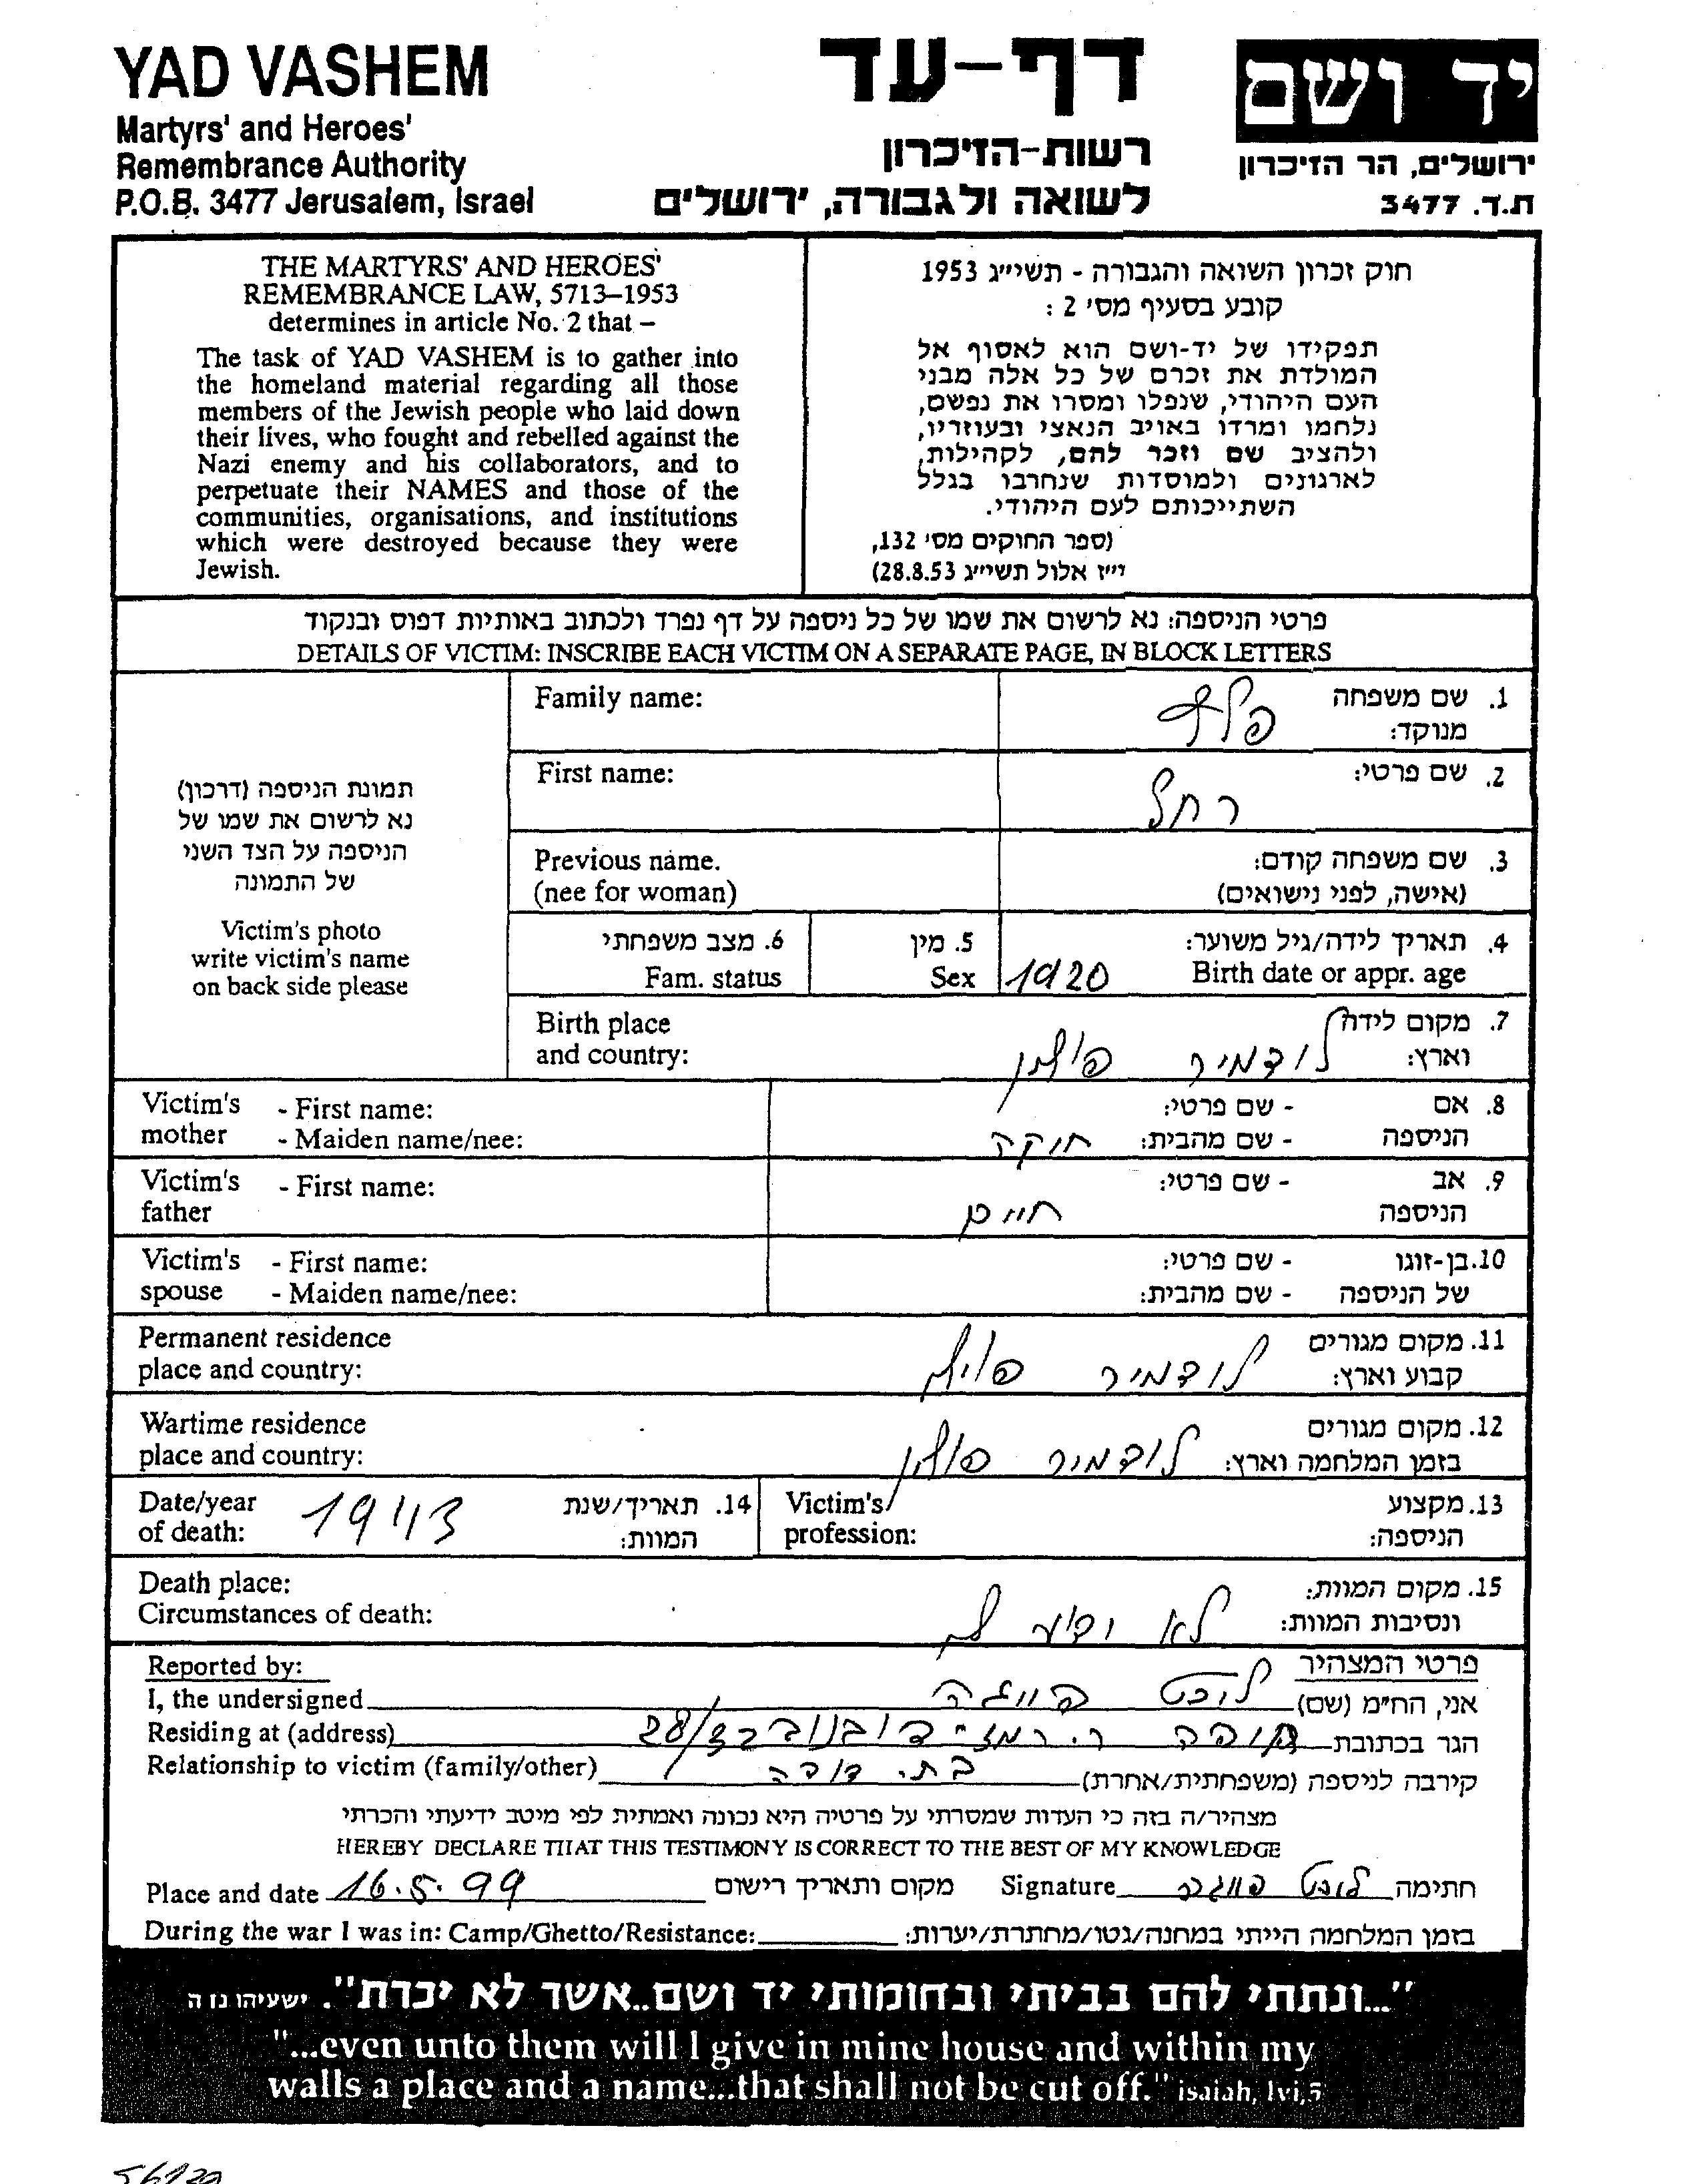 YAD VASHEM
Martyrs' and Heroes'
Remembrance Authority
P.O.B. 3477 Jerusalem, Israel
דף-עד
רשות-הזיכרון
לשואה ולגבורה, ירושלים
יד ושם
ירושלים, הר הזיכרון
ת.ד. 3477
THE MARTYRS' AND HEROES'
REMEMBRANCE LAW, 5713–1953
determines in article No. 2 that –
The task of YAD VASHEM is to gather into
the homeland material regarding all those
members of the Jewish people who laid down
their lives, who fought and rebelled against the
Nazi enemy and his collaborators, and to
perpetuate their NAMES and those of the
communities, organisations, and institutions
which were destroyed because they were
Jewish.
חוק זכרון השואה והגבורה - תשי״ג 1953
קובע בסעיף מס׳ 2 :
תפקידו של יד-ושם הוא לאסוף אל
המולדת את זכרם של כל אלה מבני
העם היהודי, שנפלו ומסרו את נפשם,
נלחמו ומרדו באויב הנאצי ובעוזריו,
ולהציב שם וזכר להם, לקהילות,
לארגונים ולמוסדות שנחרבו בגלל
השתייכותם לעם היהודי.
(ספר החוקים מס׳ 132,
י״ז אלול תשי״ג 28.8.53)
פרטי הניספה: נא לרשום את שמו של כל ניספה על דף נפרד ולכתוב באותיות דפוס ובנקוד
DETAILS OF VICTIM: INSCRIBE EACH VICTIM ON A SEPARATE PAGE, IN BLOCK LETTERS
תמונת הניספה (דרכון)
נא לרשום את שמו של
הניספה על הצד השני
של התמונה
Victim's photo
write victim's name
on back side please
Family name:
1. שם משפחה
מנוקד:
פלץ
First name:
2. שם פרטי:
רחל
Previous name.
(nee for woman)
3. שם משפחה קודם:
(אישה, לפני נישואים)
6. מצב משפחתי
Fam. status
5. מין
Sex
4. תאריך לידה/גיל משוער:
Birth date or appr. age
1920
Birth place
and country:
7. מקום לידה
וארץ:
לודמיר פולין
Victim's mother
- First name:
- Maiden name/nee:
8. אם הניספה
- שם פרטי:
- שם מהבית:
Victim's father
- First name:
9. אב הניספה
- שם פרטי:
חיים
Victim's spouse
- First name:
- Maiden name/nee:
10. בן-זוגו של הניספה
- שם פרטי:
- שם מהבית:
Permanent residence
place and country:
11. מקום מגורים
קבוע וארץ:
לודמיר פולין
Wartime residence
place and country:
12. מקום מגורים
בזמן המלחמה וארץ:
לודמיר פולין
Date/year
of death:
1943
14. תאריך/שנת
המוות:
Victim's
profession:
13. מקצוע
הניספה:
Death place:
Circumstances of death:
15. מקום המוות:
ונסיבות המוות:
לא ידוע לי
Reported by:
פרטי המצהיר
I, the undersigned
אני, הח״מ (שם)
Residing at (address)
הגר בכתובת
28/32
Relationship to victim (family/other)
קירבה לניספה (משפחתית/אחרת)
בת. דודה
מצהיר/ה בזה כי העדות שמסרתי על פרטיה היא נכונה ואמתית לפי מיטב ידיעתי והכרתי
HEREBY DECLARE THAT THIS TESTIMONY IS CORRECT TO THE BEST OF MY KNOWLEDGE
Place and date 16.5.99 מקום ותאריך רישום
Signature חתימה
During the war I was in: Camp/Ghetto/Resistance: בזמן המלחמה הייתי במחנה/גטו/מחתרת/יערות:
"...ונתתי להם בביתי ובחומותי יד ושם..אשר לא יכרת". ישעיהו נו ה
"...even unto them will I give in mine house and within my
walls a place and a name...that shall not be cut off." isaiah, lvi,5